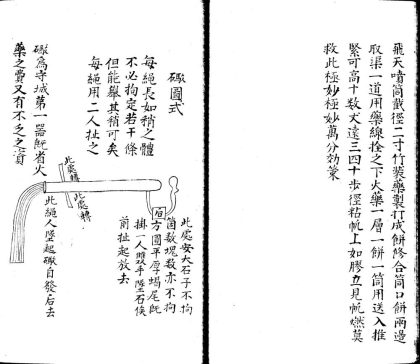 飛天噴筒截徑二寸竹裝藥製打成餅修合筒口餅兩邊
取渠一道用藥線拴之下火藥一層一餅一筒用送入推
緊可高十數丈遠三四十步徑粘帆上如膠立見帆燃莫
救此極妙極妙萬分効策
礮圖式
每繩長如稍之體
不必拘定若干條
但能舉其稍可矣
每繩用二人扯之
礮為守城第一器既省火
藥之費又有不乏之資
此處安大石子不拘
箇數塊數亦不拘
方圓平厚蝎尾既
掛一人雙手墜石俟
前扯起放去
石
此處轉
此處轉
此繩人墜起礮自發后去